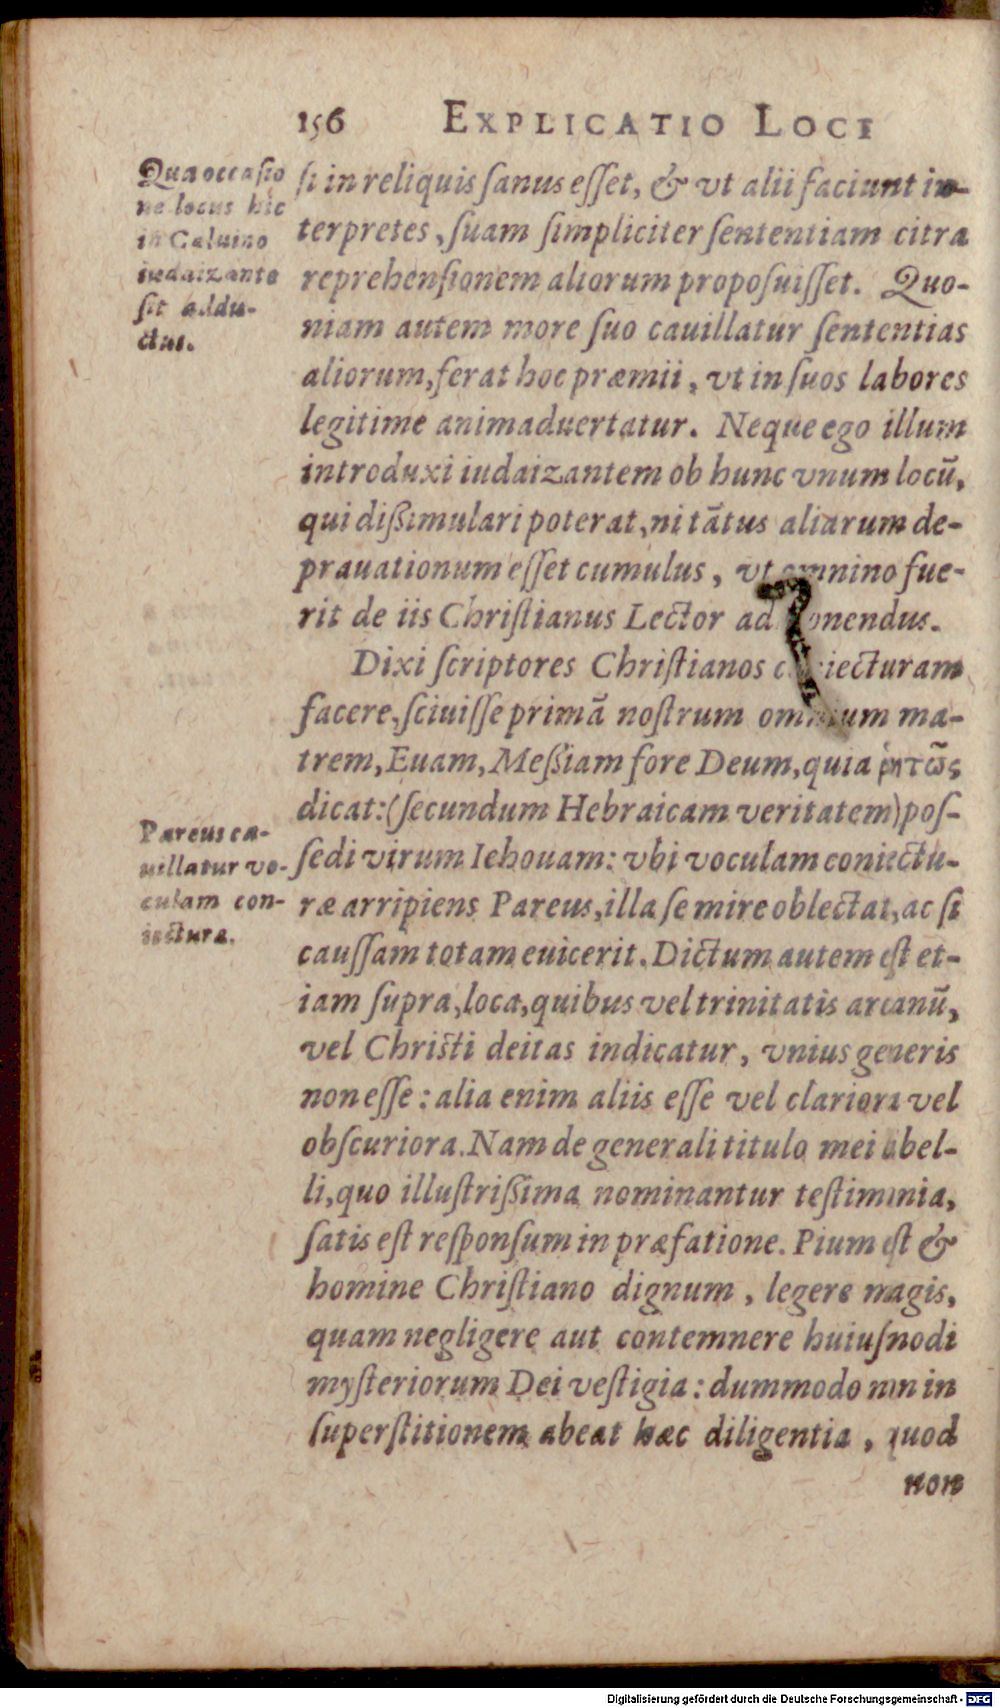 156 EXPLICATIO LOCI
Qua occasio
ne locus hic
in Caluino
iudaizante
sit addu-
ctus.
ſi in reliquis ſanus eſſet, & vt alii faciunt in-
terpretes, ſuam ſimpliciter ſententiam citra
reprehenſionem aliorum propoſuiſſet. Quo-
niam autem more ſuo cauillatur ſententias
aliorum, ferat hoc præmii, vt in ſuos labores
legitime animaduertatur. Neque ego illum
introduxi iudaizantem ob hunc vnum locū,
qui diſsimulari poterat, ni tātus aliarum de-
prauationum eſſet cumulus, vt omnino fue-
rit de iis Chriſtianus Lector admonendus.
Dixi ſcriptores Chriſtianos coniecturam
facere, ſciuiſſe primā noſtrum omnium ma-
trem, Euam, Meſsiam fore Deum, quia ῥητῶς
dicat: (ſecundum Hebraicam veritatem) poſ-
ſedi virum Iehouam: vbi voculam coniectu-
Pareus ca-
uillatur vo-
culam con-
iectura.
ræ arripiens Pareus, illa ſe mire oblectat, ac ſi
cauſſam totam euicerit. Dictum autem eſt et-
iam ſupra, loca, quibus vel trinitatis arcanū,
vel Chriſti deitas indicatur, vnius generis
non eſſe: alia enim aliis eſſe vel clariora vel
obſcuriora. Nam de generali titulo mei libel-
li, quo illuſtriſsima nominantur teſtimonia,
ſatis eſt reſponſum in præfatione. Pium eſt &
homine Chriſtiano dignum, legere magis,
quam negligere aut contemnere huiuſmodi
myſteriorum Dei veſtigia: dummodo non in
ſuperſtitionem abeat hæc diligentia, quod
non
Digitalisierung gefördert durch die Deutsche Forschungsgemeinschaft - DFG